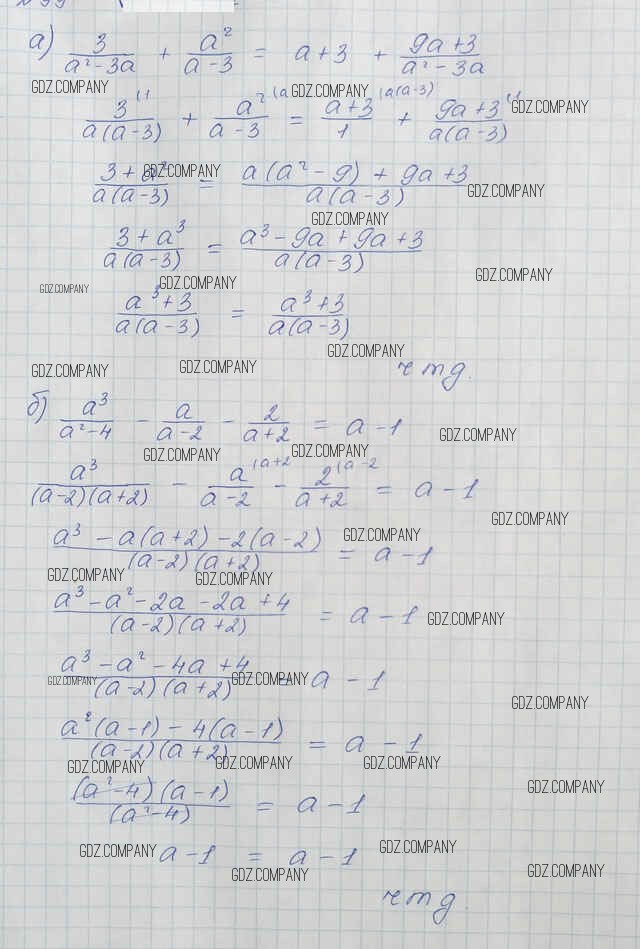 а) 3/(a² - 3a) + a²/(a - 3) = a + 3 + (9a + 3)/(a² - 3a)
GDZ.COMPANY GDZ.COMPANY
3^(1/(a(a - 3)) + a²^(a/(a - 3) = (a + 3)^(a(a - 3)/1 + (9a + 3)^(1/(a(a - 3)) GDZ.COMPANY
GDZ.COMPANY
(3 + a²)/(a(a - 3)) = (a(a² - 9) + 9a + 3)/(a(a - 3)) GDZ.COMPANY
GDZ.COMPANY
(3 + a³)/(a(a - 3)) = (a³ - 9a + 9a + 3)/(a(a - 3))
GDZ.COMPANY
GDZ.COMPANY GDZ.COMPANY
(a³ + 3)/(a(a - 3)) = (a³ + 3)/(a(a - 3))
GDZ.COMPANY
GDZ.COMPANY GDZ.COMPANY чтд.
б) a³/(a² - 4) - a/(a - 2) - 2/(a + 2) = a - 1 GDZ.COMPANY
GDZ.COMPANY GDZ.COMPANY
a³/((a - 2)(a + 2)) - a^(a + 2/(a - 2) - 2^(a - 2/(a + 2) = a - 1
GDZ.COMPANY
(a³ - a(a + 2) - 2(a - 2))/((a - 2)(a + 2)) = a - 1 GDZ.COMPANY
GDZ.COMPANY GDZ.COMPANY
(a³ - a² - 2a - 2a + 4)/((a - 2)(a + 2)) = a - 1 GDZ.COMPANY
(a³ - a² - 4a + 4)/((a - 2)(a + 2)) = a - 1
GDZ.COMPANY GDZ.COMPANY
GDZ.COMPANY
(a²(a - 1) - 4(a - 1))/((a - 2)(a + 2)) = a - 1
GDZ.COMPANY GDZ.COMPANY GDZ.COMPANY
((a² - 4)(a - 1))/((a² - 4)) = a - 1 GDZ.COMPANY
GDZ.COMPANY a - 1 = a - 1 GDZ.COMPANY
GDZ.COMPANY GDZ.COMPANY
чтд.